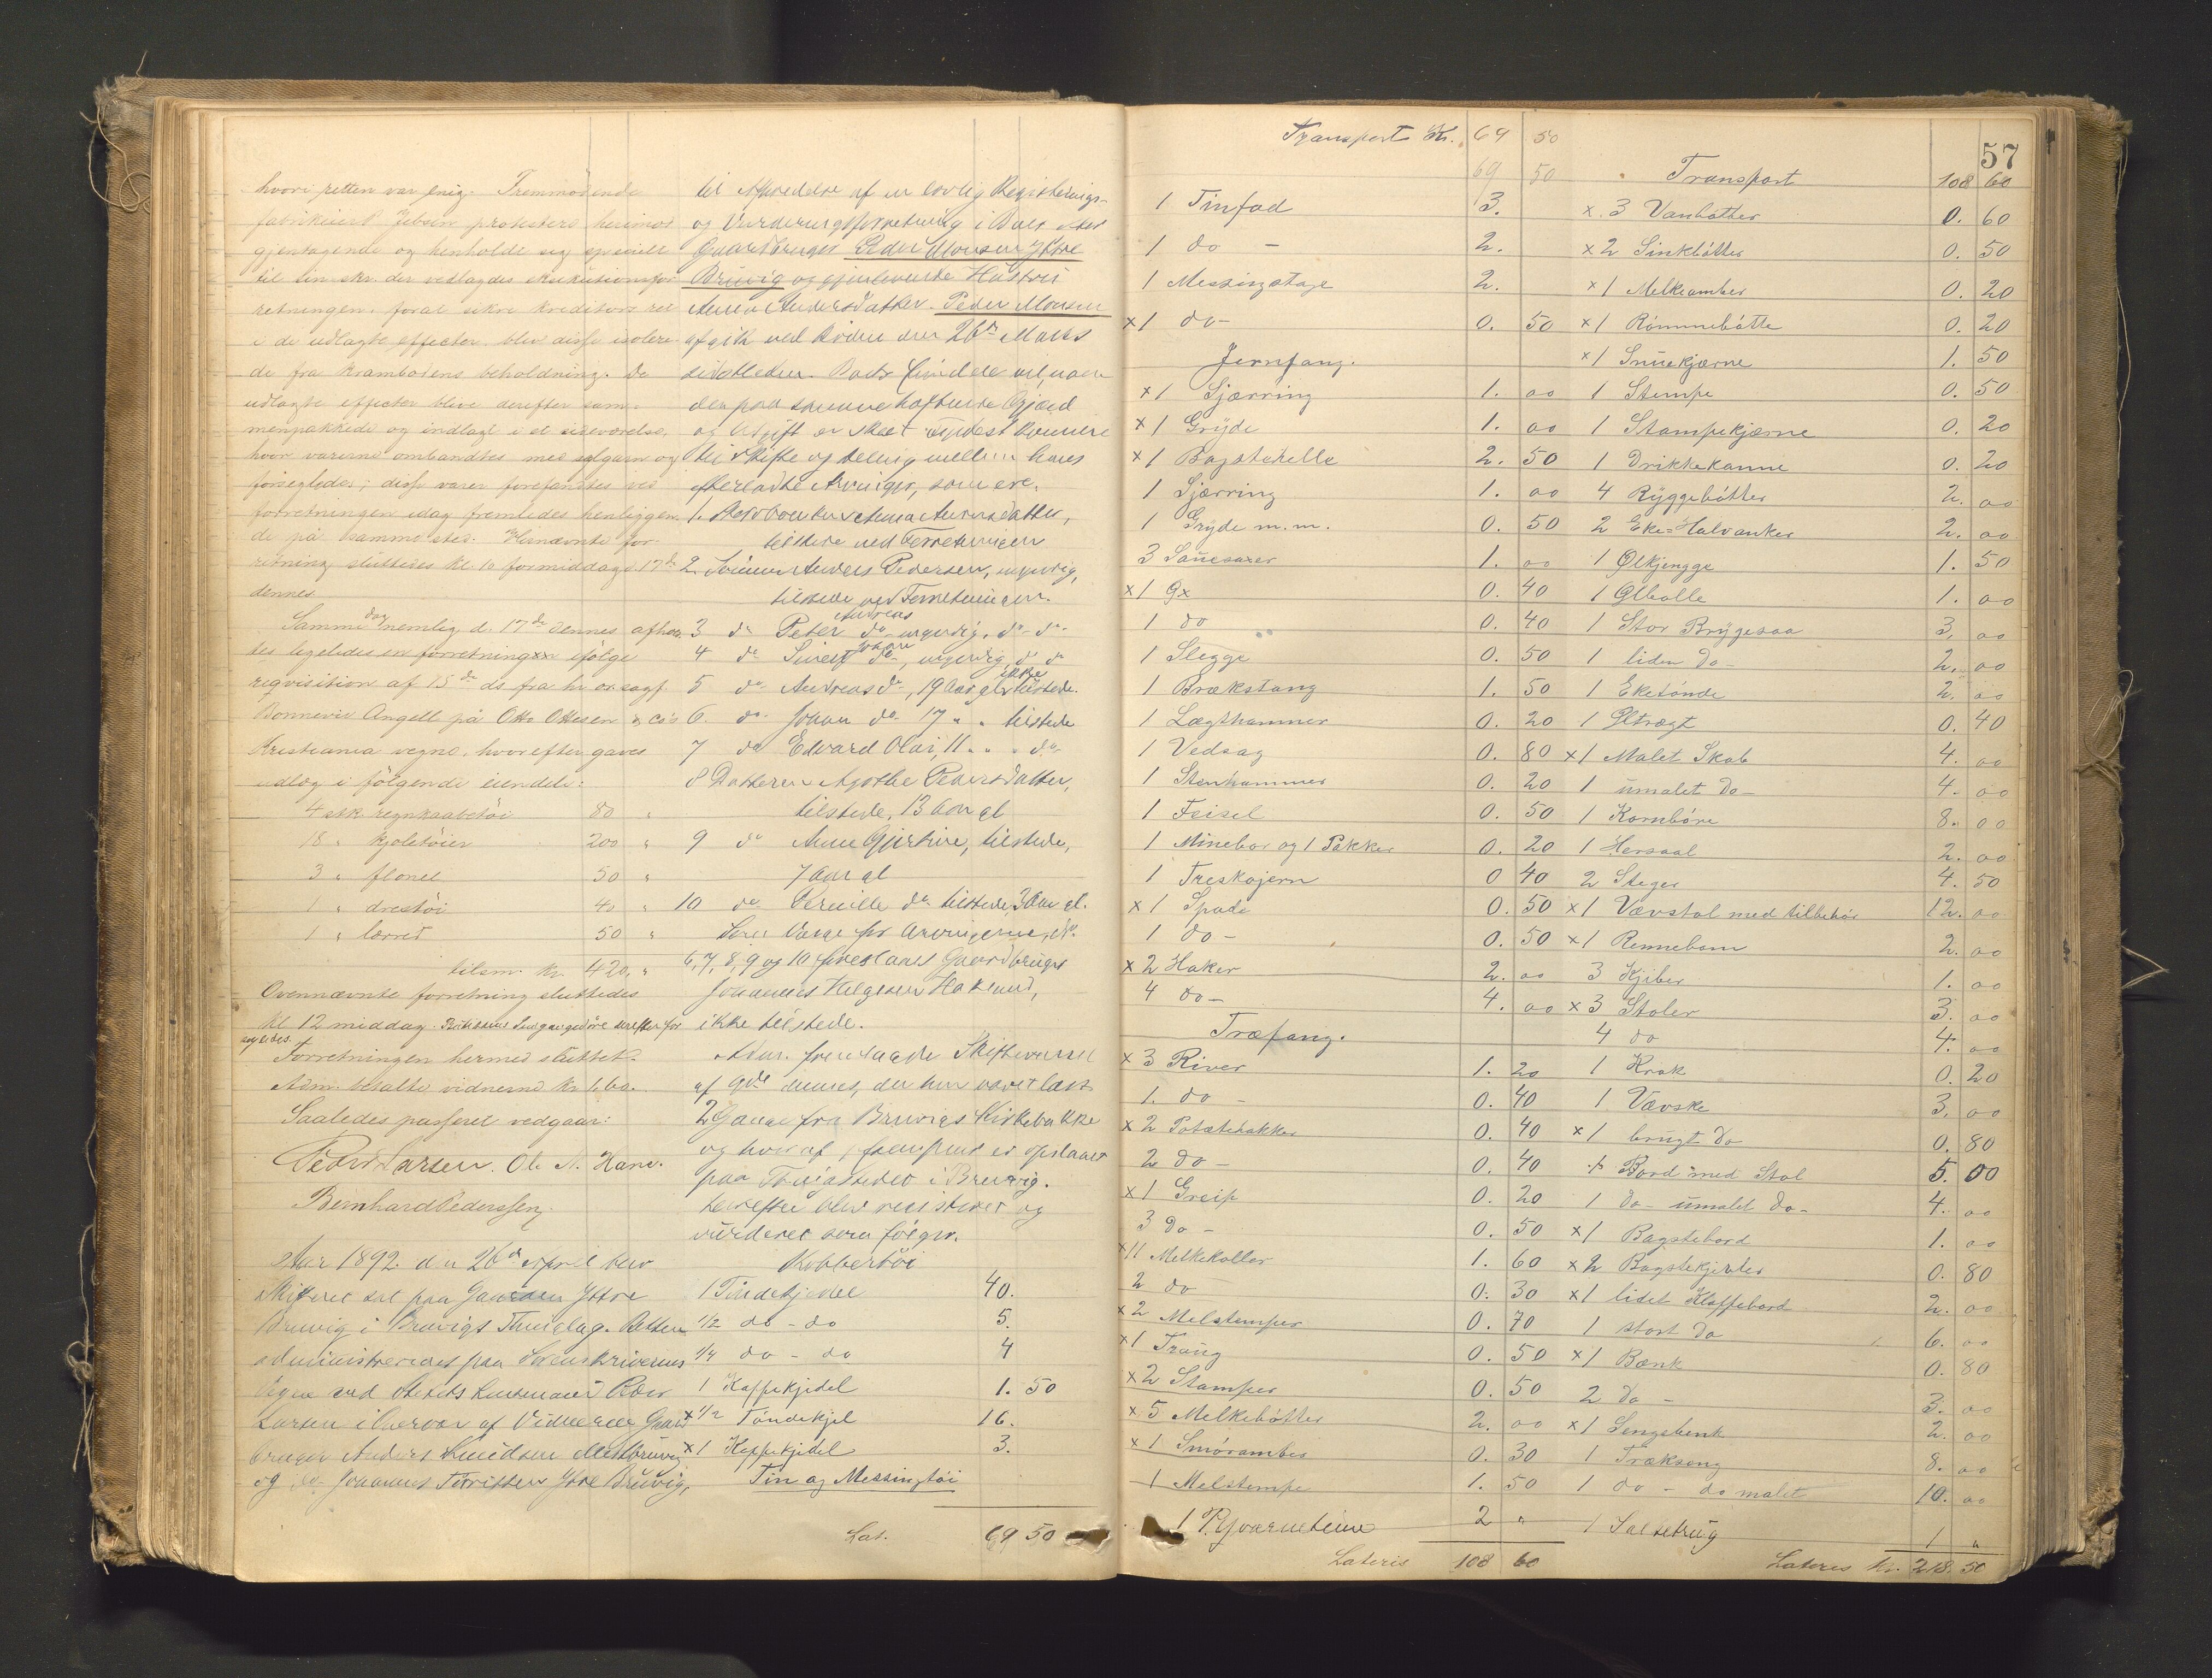 hvori retten var enig. Fremmødende
fabrikeier Jebsen protestere herimod
gjentagende og henholdt sig specielt
til sin skr. der vedlagdes eksekutionsfor
retningen. foral sikre kreditors ret
i de udlagte effecter blev disse isolere-
de fra krambodens beholdning. De
udlagte effecter bleve derefter sam-
menpakkede og indlagt i et sideværelse,
hvor varerne ombandtes med selgarn og
forsegledes; disse varer forefandtes ved
forretningen idag fremdeles henliggen
de på samme sted. Hernævnte for-
retning sluttedes kl. 10 formiddag d. 17de
dennes.
Samme dag nemlig d. 17de dennes afhol
des ligeledes en forretning ifølge
reqvisition af 15de ds fra hr. o.r.sagf.
Bonnevie Angell på Otto Ottesen & Co's
Kristiania vegne, hvorefter gaves
udlæg i følgende eiendele:
4 stk regnkaabetøi 80 "
18 " kjoletøier 200 "
3 " flonel 50 "
1 " drestøi 40 "
1 " lærred 50 "
tilsm. kr. 420, "
Ovennævnte forretning sluttedes
kl 12 middag. Butikkens Indgangsdøre derefter for
segledes.
Forretningen hermed sluttet.
Adm. betalte vidnerne kr 1.60.
Saaledes passeret vedgaar:
Peder Larsen. Ole A. Hane.
Bernhard Pederssen.
Aar 1892 den 26de April blev
Skifteret sat paa Gaarden Yttre
Bruvig i Bruvigs Thinglag. Retten
administreredes paa Sorenskriverens
Vegne ved Stedets Lensmand Peder
Larsen i Overvær af Vidnerne Gaard
bruger Anders Knudsen Mestbruvig
og do Johannes Torrissen Ytre Bruvig,
til Afholdelse af en lovlig Registerings-
og Vurderingsforretning i Boet efter
Gaardbruger Peder Monsen Yttre
Bruvig og gjenlevende Hustru
Anna Andersdatter. Peder Monsen
afgik ved Døden den 26de Marts
sidstleden. Boets
den paa samme heftende Gjæld
og Udgift er skeet
til Skifte og Deling mellem hans
efterladte Arvinger, som ere:
1. Anna Andersdatter,
tilstede ved Forretningen
2. Sønnen Anders Pedersen, myndig,
tilstede ved Forretningen.
3 do Peter Andreas do myndig, do do
4 do Sivert Johan do, myndig, do do
5 do Andreas do, 19 Aar gl. ikke tilstede.
6. do. Johan do 17 " " tilstede
7 do Edvard Olai, 11 " " do
8 Datteren Agathe Pedersdatter,
tilstede, 13 Aar gl
9 do Anne Gjertine, tilstede,
7 Aar gl
10 do Pernille do tilstede, 3 Aar gl.
Som Værge for Arvingerne, No.
6, 7, 8, 9 og 10 foreslaaes Gaardbruger
Johannes Helgesen Hakmed,
ikke tilstede.
Adm. fremlagde Skiftevarsel
af 9de dennes, der har været læst
2 Gange fra Bruvigs Kirkebakke
og hvoraf 1 Exemplar er opslaaet
paa Thingstedet i Bruvig.
Derefter blev registeret og
vurderet som følger.
Kobbertøi
1 Tøndekjedel 40.
1/2 do - do 5.
1/4 do - do 4
1 Kaffekjedel 1. 50
x 1/2 Tøndekjel 16.
x 1 Kaffekjedel 3.
Tin og Messingtøi
Lat. 69 50
Transport Kr. 69 50
69 50
1 Tinfad 3.
1 do - 2.
1 Messingstage 2.
x 1 do - 0. 50
Jernfang.
x 1 Gjærring 1. 00
x 1 Gryde 1. 00
x 1 Bagstehelle 2. 50
1 Gjærring 1. 00
1 Gryde m.m. 0. 50
3 Sauesaxer 1. 00
x 1 Øx 0. 40
1 do 0. 40
1 Slegge 0. 50
1 Brækstang 1. 50
1 Lægthammer 0. 20
1 Vedsag 0. 80
1 Stenhammer 0. 20
1 Feisel 0. 50
1 Minebor og 1 Pakker 0. 20
1 Treskojern 0 40
x 1 Spade 0. 50
1 do - 0. 50
x 2 Haker 2. 00
4 do - 4. 00
Træfang.
x 3 River 1. 20
1. do - 0. 40
x 2 Potetehakker 0. 40
2 do - 0. 40
x 1 Greip 0. 20
3 Do - 0. 50
x 11 Melkekoller 1. 60
2 do 0. 30
x 2 Melstemper 0. 70
x 1 Traug 0. 50
x 2 Stamper 0. 50
x 5 Melkebøtter 2. 00
x 1 Smøramber 0. 30
1 Melstempe 1. 50
1 P. Qvarnsteine 2 "
Lateris 108 60
57
Transport 108 60
x 3 Vanbøtter 0. 60
x 2 Sinkbøtter 0. 50
x 1 Melkeamber 0. 20
x 1 Rømmebøtte 0. 20
x 1 Snuekjærne 1. 50
1 Stempe 0. 50
1 Stampekjærne 0. 20
1 Drikkekanne 0. 20
4 Ryggebøtter 2. 00
2 Eke-Halvanker 2. 00
1 Ølkjengge 1. 50
1 Ølbolle 1. 00
1 Stor Brygesaa 3. 00
1 liden Do - 2. 00
1 Eketønde 2. 00
1 Øltragt 0. 40
x 1 Malet Skab 4. 00
1 umalet Do - 4. 00
1 Kornbøre 8. 00
1 Hersaal 2. 00
2 Steger 4. 50
x 1 Vævstol med tilbehør 12. 00
x 1 Rennebom 2. 00
3 Kjiber 1. 00
x 3 Stoler 3. 00
4 do 4. 00
1 Krak 0. 20
1 Væske 3. 00
x 1 brugt Do 0. 80
x Bord med Stol 5. 00
1 Do - umalet Do - 4. 00
x 1 Bagstebord 1. 00
x 2 Bagstekjevler 0. 80
x 1 lidet Klaffebord 2. 00
1 stort Do 6. 00
x 1 Bænk 0. 80
2 Do - 3. 00
x 1 Sengebenk 2. 00
1 Trækseng 8. 00
1 do - do malet 10. 00
1 Saltetrug 1 "
Lateris Kr. 218. 50